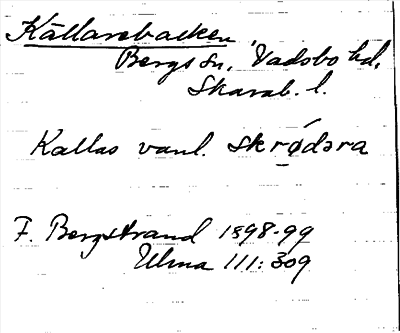 Källarebacken
Bergs sn, Vadsbo hd,
Skarab. l.
Kallas vanl. skrǿdəra
F. Bergstrand 1898-99
Ulma 111:309